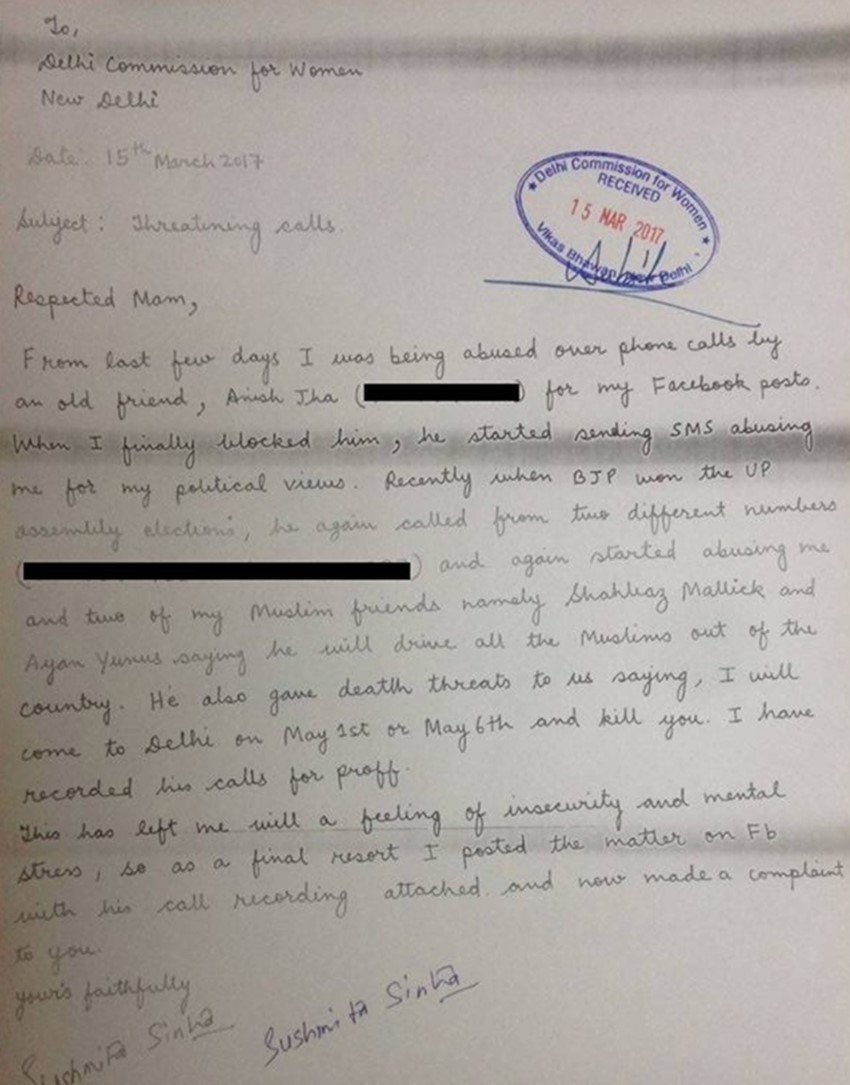 To,
Delhi Commission for Women
New Delhi
Date: 15th March 2017
Subject: Threatining calls.
★ Delhi Commission for Women ★
RECEIVED
15 MAR 2017
Vikas Bhawan, New Delhi
Respected Mam,
From last few days I was being abused over phone calls by
an old friend, Anish Jha ( ) for my Facebook posts.
When I finally blocked him, he started sending SMS abusing
me for my political views. Recently when BJP won the UP
assembly elections, he again called from two different numbers
( ) and again started abusing me
and two of my Muslim friends namely Shahbaz Mallick and
Ayan Yunus saying he will drive all the Muslims out of the
country. He also gave deatlh threats to us saying, I will
come to Delhi on May 1st or May 6th and kill you. I have
recorded his calls for proff.
This has left me will a feeling of insecurity and mental
stress, so as a final resort I posted the matter on Fb
with his call recording attached. and now made a complaint
to you.
your's faithfully
Sushmita Sinha
Sushmita Sinha